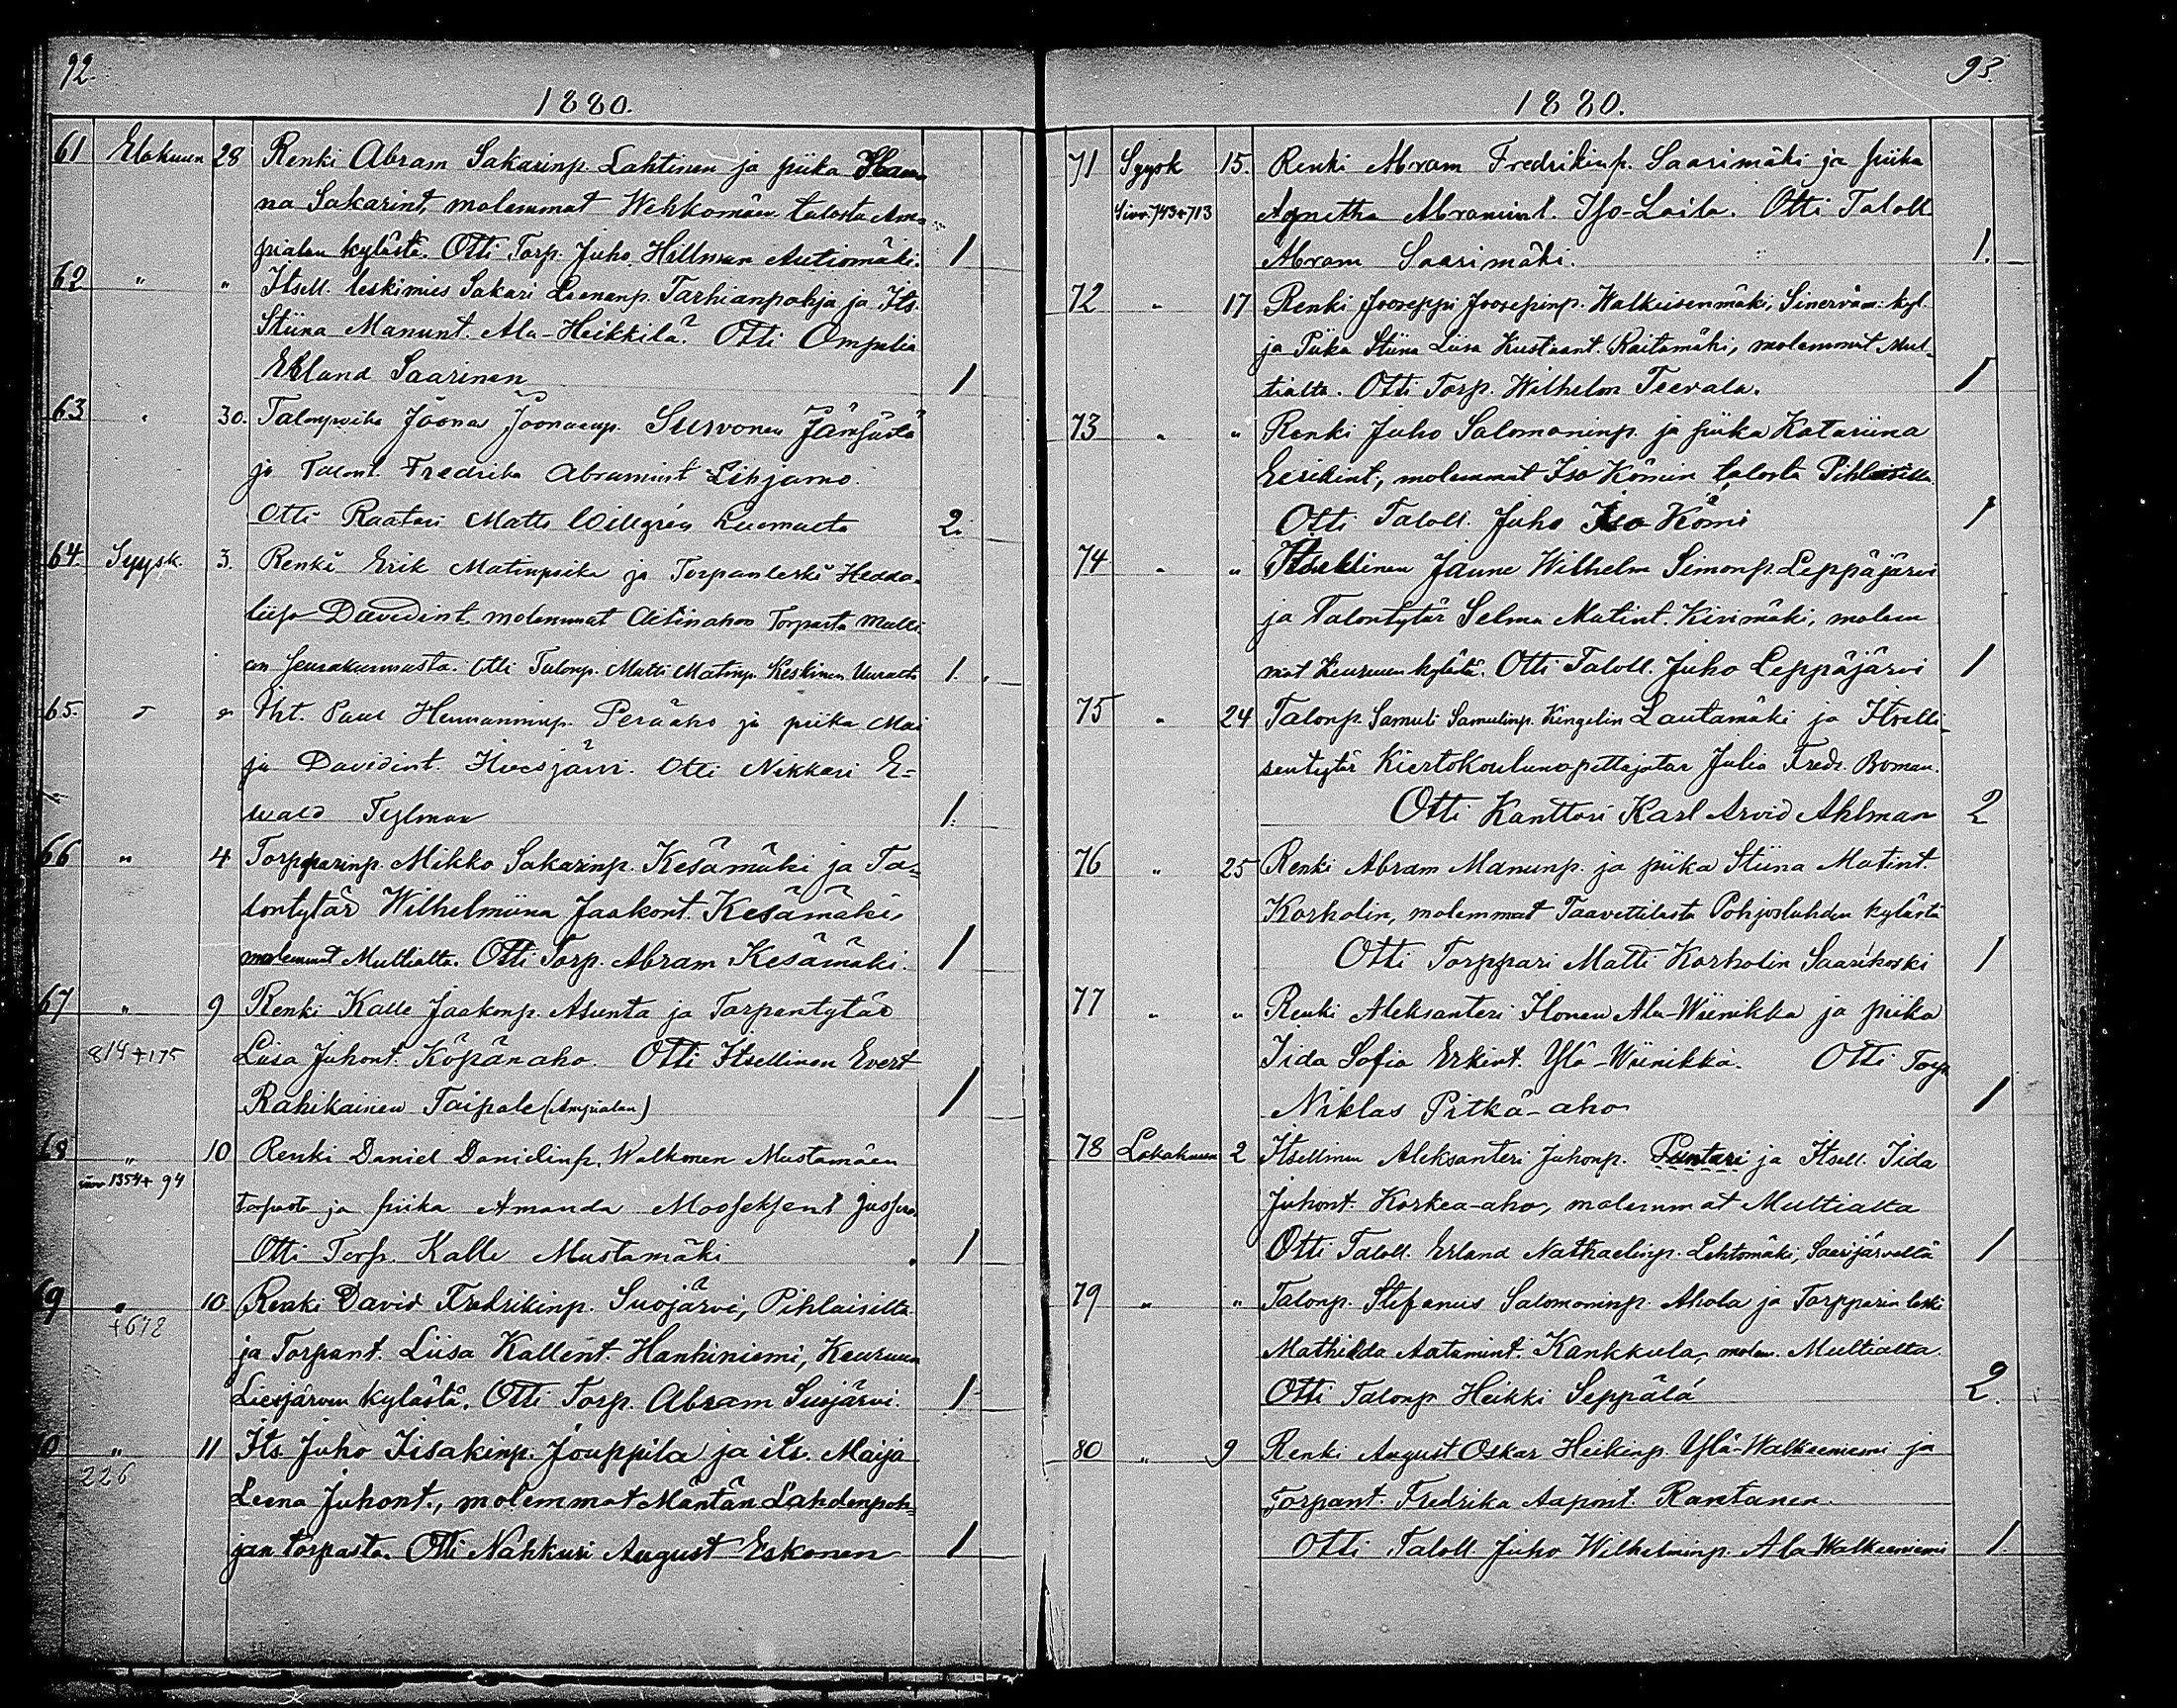 92.
1880.
61 Elokuun 28 Renki Abram Sakarinp. Lahtinen ja piika Hanna
na Sakarint, molemmat Wehkomäen talosta Am-
pialan kylästä. Otti Torp. Juho Hillman Autiomäki. 1
62 " " Itsell. leskimies Sakari Leenanp. Tarhianpohja ja Its.
Stiina Manunt. Ala-Heikkilä. Otti Ompelia
Erland Saarinen 1
63 " 30. Talonpoika Joona Joonaanp. Survonen
ja Talont. Fredrika Abramint Lihjamo.
Otti Raatari Matts Willgrén 2.
64. Syysk. 3. Renki Erik Matinpoika ja Torpanleski Hedda-
liisa Davidint. molemmat Aitinahon Torpasta Multi
an seurakunnasta. Otti Talonp. Matti Matinp. Keskinen 1.
65. " " Paul Hermanninp. Peräaho ja piika Mai
ja Davidint. Otti Nikkari E-
wald Tylman 1.
66 " 4 Torpparinp. Mikko Sakarinp. Kesämäki ja Ta-
lontytär Wilhelmiina Jaakont. Kesämäki,
molemmat Multialta. Otti Torp. Abram Kesämäki. 1
67 " 9 Renki Kalle Jaakonp. Asunta ja Torpantytär
814+175 Liisa Juhont. Köpänaho. Otti Itsellinen Evert
Rahikainen Taipale (Ampialan) 1
68 " 10 Renki Daniel Danielinp. Walkonen Mustamäen
1354+94 torpasta ja piika Amanda
Otti Torp. Kalle Mustamäki 1
69 " 10 Renki David Fredrikinp. Suojärvi, Pihlaisilta
+678 ja Torpant. Liisa Kallent. Hankiniemi, Keuruun
Liesjärven kylästä. Otti Torp. Abram Suojärvi. 1
70 " 11 Its. Juho Iisakinp. Jouppila ja its. Maija
226 Leena Juhont., molemmat Mäntän Lahdenpoh-
jan torpasta. Otti Nahkuri August Eskonen 1
93.
1880.
71 Syysk 15. Renki Abram Fredrikinp. Saarimäki ja piika
743+713 Agnetha Abramint. Iso-Laila. Otti Taloll
Abram Saarimäki. 1.
72 " 17 Renki Jooseppi Joosepinp. Walkeisenmäki, Sinervän kyl.
ja Piika Stiina Liisa Kustaant. Raitamäki, molemmat Mul-
tialta. Otti Torp. Wilhelm Teerala. 1
73 " " Renki Juho Salomoninp. ja piika Katariina
Eerikint, molemmat Iso Kömin talosta
Otti Taloll. Juho Iso Kömi 1
74 " " Itsellinen Janne Wilhelm Simonp. Leppäjärvi
ja Talontytär Selma Matint. Kivimäki, molem
mat Keuruun kylästä. Otti Taloll. Juho Leppäjärvi 1
75 " 24 Talonp. Samuli Samulinp. Kingelin Lautamäki ja Itselli-
sentytär Kiertokoulunopettajatar Julia Fredr. Boman.
Otti Kanttori Karl Arvid Ahlman 2
76 " 25 Renki Abram Manunp. ja piika Stiina Matint.
Korholin, molemmat Taavettilasta Pohjoslahden kylästä
Otti Torppari Matti Korholin Saarikoski 1
77 " " Renki Aleksanteri Ilonen Ala-Wiinikka ja piika
Iida Sofia Erkint. Ylä-Wiinikka. Otti Torp
Niklas Pitkä-aho 1
78 Lokakuun 2 Itsellinen Aleksanteri Juhonp. Puntari ja Itsell. Iida
Juhont. Korkea-aho, molemmat Multialta
Otti Taloll. Erland Nathaelinp. Lehtomäki, Saarijärveltä 1
79 " " Talonp. Stefanus Salomoninp. Ahola ja Torpparin leski
Mathilda Aatamint. Kankkula, molem. Multialta.
Otti Talonp Heikki Seppälä 2.
80 " 9 Renki August Oskar Heikinp. Ylä-Walkeeniemi ja
Torpant. Fredrika Aapont. Rantanen.
Otti Taloll Juho Wilhelminp. Ala-Walkeeniemi 1.